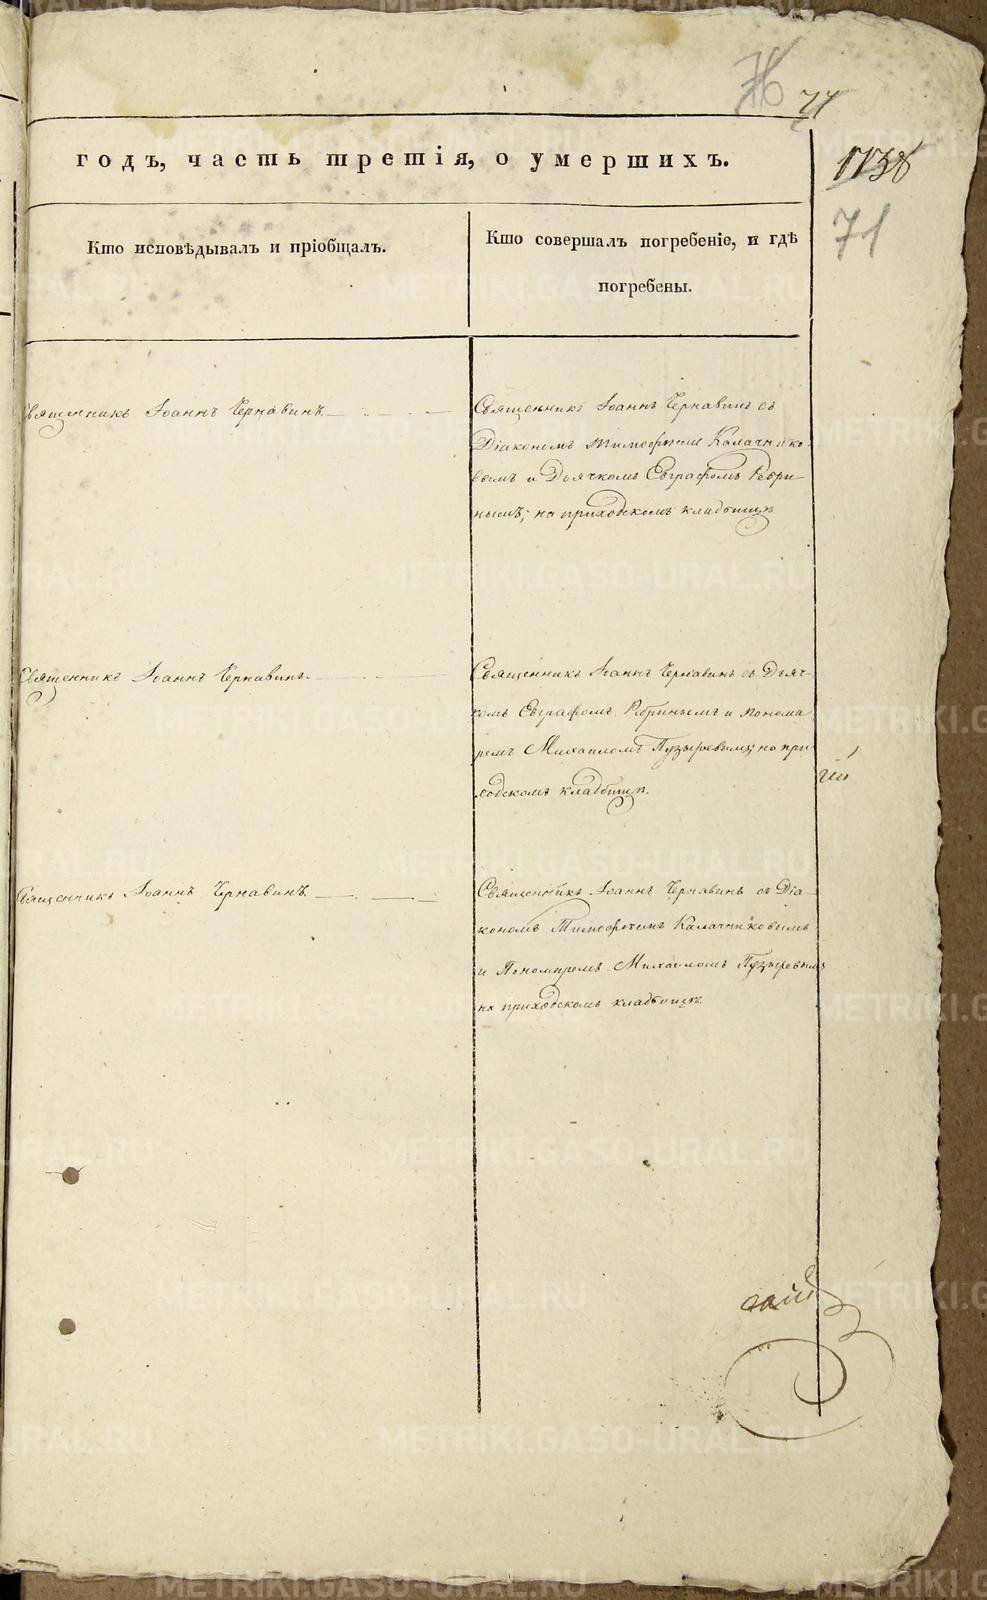 71
годъ, часть третія, о умершихъ.
1138
71
Кто исповѣдывалъ и пріобщалъ.
Кто совершалъ погребеніе, и гдѣ
погребены.
Священникъ Іоаннъ Чернавинъ
Священникъ Іоаннъ Чернавинъ съ
Діакономъ Тимофеемъ Калачнико-
вымъ и Дьячкомъ Евграфомъ Ребри-
нымъ; на приходскомъ кладбищѣ
Священникъ Іоаннъ Чернавинъ
Священникъ Іоаннъ Чернавинъ съ Дьяч-
комъ Евграфомъ Ребринымъ и понома
ремъ Михаиломъ Пузыревымъ; на при
ходскомъ кладбищѣ.
Священникъ Іоаннъ Чернавинъ
Священникъ Іоаннъ Чернавинъ съ Діа-
кономъ Тимофеемъ Калачниковымъ
и Пономаремъ Михаиломъ Пузыревымъ
на приходскомъ кладбищѣ.
METRIKI.GASO-URAL.RU